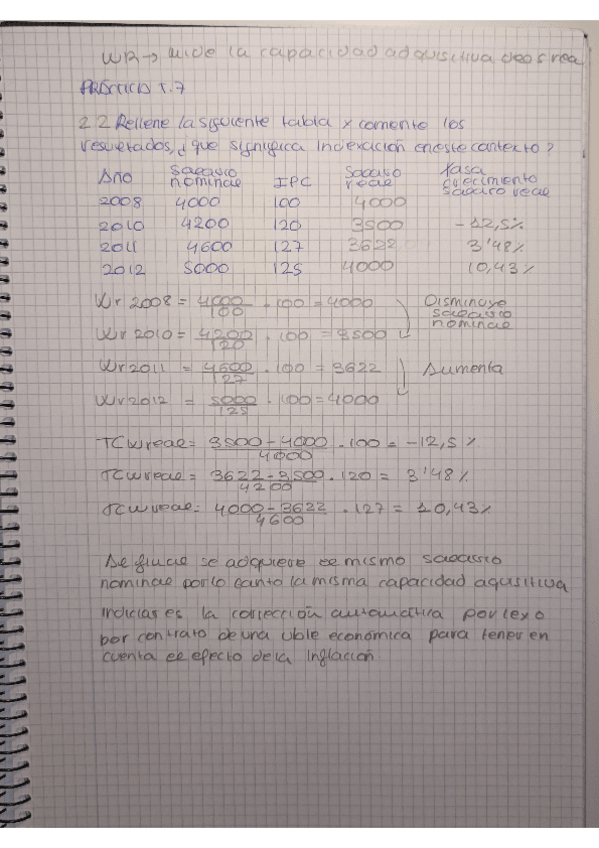 WR → mide la capacidad adquisitiva deos rea
PRÁCTICA T.7
2.2 Rellene la siguiente tabla y comente los
resultados, ¿que significa indexación en este contexto?
Año Salario nominal IPC Salario real tasa crecimiento salario real
2008 4000 100 4000
2010 4200 120 3500 -12,5%
2011 4600 127 3622 3'48%
2012 5000 125 4000 10,43%
Wr 2008 = 4000/100 · 100 = 4000
Disminuye salario nominal
Wr 2010 = 4200/120 · 100 = 3500
Wr 2011 = 4600/127 · 100 = 3622
Aumenta
Wr 2012 = 5000/125 · 100 = 4000
TCWreal = 3500-4000/4000 · 100 = -12,5%
TCWreal = 3622-3500/4200 · 120 = 3'48%
TCWreal = 4000-3622/4600 · 127 = 10,43%
Al final se adquiere el mismo salario
nominal por lo tanto la misma capacidad aquisitiva
Indiciar es la corrección automática por ley o
por contrato de una vble económica para tener en
cuenta el efecto de la inflación